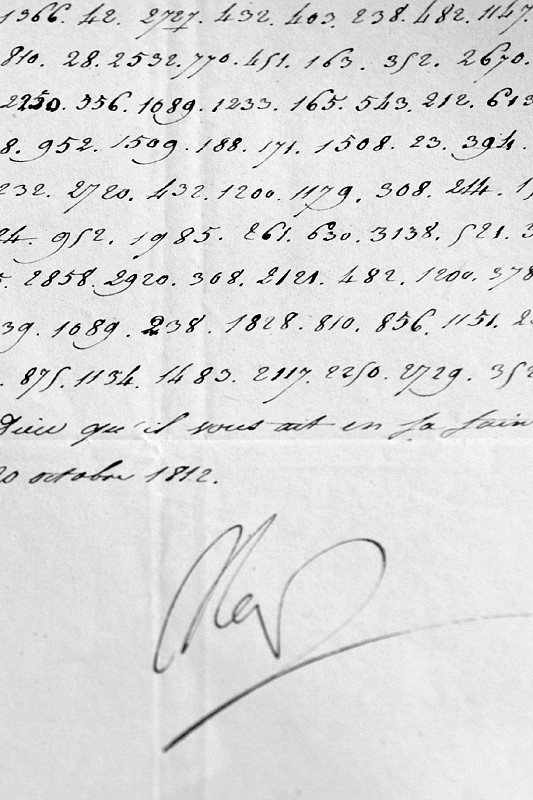 1366. 42. 2727. 432. 403. 238. 482. 1147.
810. 28. 2532. 770. 451. 163. 352. 2670.
2250. 556. 1089. 1233. 165. 543. 212. 613
8. 952. 1509. 188. 171. 1508. 23. 394.
232. 2720. 432. 1200. 1179. 308. 214.
24. 952. 1985. 261. 630. 3138. 521. 3
2858. 2920. 308. 2121. 482. 1200. 378
39. 1089. 238. 1828. 810. 856. 1151.
875. 1134. 1483. 2117. 2250. 2729. 352
Dieu qu'il vous ait en sa sain
20 octobre 1812.
Nap